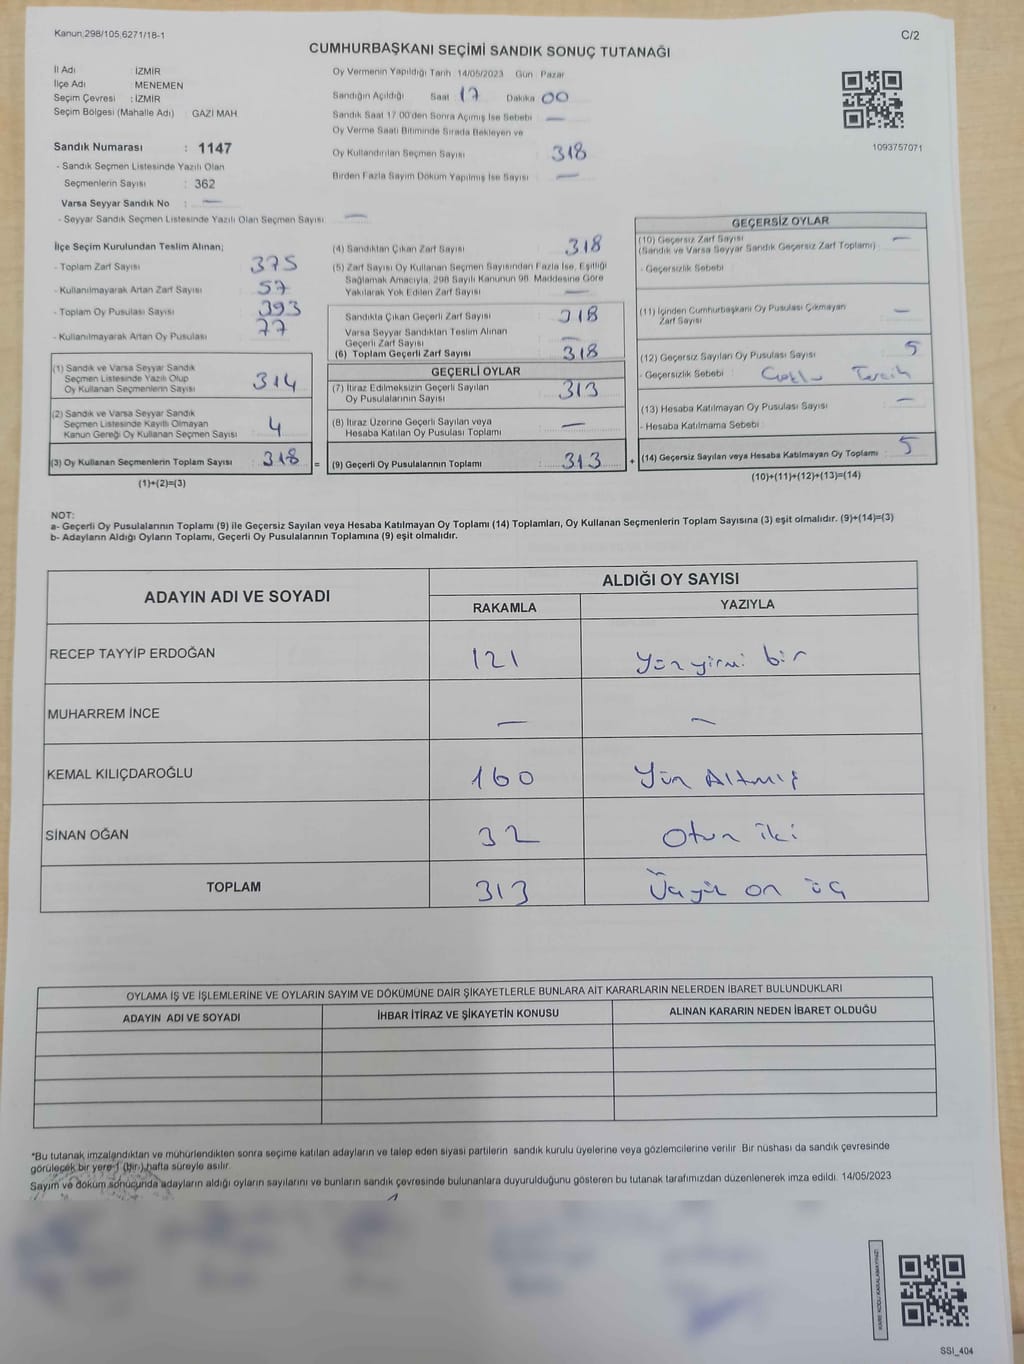 Kanun 298/105,6271/18-1
C/2
CUMHURBAŞKANI SEÇİMİ SANDIK SONUÇ TUTANAĞI
İl Adı : İZMİR
İlçe Adı : MENEMEN
Seçim Çevresi : İZMİR
Seçim Bölgesi (Mahalle Adı) : GAZİ MAH
Sandık Numarası : 1147
- Sandık Seçmen Listesinde Yazılı Olan
Seçmenlerin Sayısı : 362
Varsa Seyyar Sandık No : —
- Seyyar Sandık Seçmen Listesinde Yazılı Olan Seçmen Sayısı : —
Oy Vermenin Yapıldığı Tarih 14/05/2023 Gün Pazar
Sandığın Açıldığı Saat 17 Dakika 00
Sandık Saat 17 00'den Sonra Açımış İse Sebebi : —
Oy Verme Saati Bitiminde Sırada Bekleyen ve
Oy Kullandırılan Seçmen Sayısı : 318
Birden Fazla Sayım Döküm Yapılmış İse Sayısı : —
1093757071
İlçe Seçim Kurulundan Teslim Alınan;
- Toplam Zarf Sayısı : 375
- Kullanılmayarak Artan Zarf Sayısı : 57
- Toplam Oy Pusulası Sayısı : 393
- Kullanılmayarak Artan Oy Pusulası : 77
(1) Sandık ve Varsa Seyyar Sandık
Seçmen Listesinde Yazılı Olup
Oy Kullanan Seçmenlerin Sayısı : 314
(2) Sandık ve Varsa Seyyar Sandık
Seçmen Listesinde Kayıtlı Olmayan
Kanun Gereği Oy Kullanan Seçmen Sayısı : 4
(3) Oy Kullanan Seçmenlerin Toplam Sayısı : 318
(1)+(2)=(3)
(4) Sandıktan Çıkan Zarf Sayısı : 318
(5) Zarf Sayısı Oy Kullanan Seçmen Sayısından Fazla İse, Eşitliği
Sağlamak Amacıyla, 298 Sayılı Kanunun 98. Maddesine Göre
Yakılarak Yok Edilen Zarf Sayısı : —
Sandıkla Çıkan Geçerli Zarf Sayısı : 318
Varsa Seyyar Sandıktan Teslim Alınan
Geçerli Zarf Sayısı : —
(6) Toplam Geçerli Zarf Sayısı : 318
GEÇERLİ OYLAR
(7) İtiraz Edilmeksizin Geçerli Sayılan
Oy Pusulalarının Sayısı : 313
(8) İtiraz Üzerine Geçerli Sayılan veya
Hesaba Katılan Oy Pusulası Toplamı : —
= (9) Geçerli Oy Pusulalarının Toplamı : 313
GEÇERSİZ OYLAR
(10) Geçersiz Zarf Sayısı : —
(Sandık ve Varsa Seyyar Sandık Geçersiz Zarf Toplamı)
- Geçersizlik Sebebi :
(11) İçinden Cumhurbaşkanı Oy Pusulası Çıkmayan
Zarf Sayısı : —
(12) Geçersiz Sayılan Oy Pusulası Sayısı : 5
- Geçersizlik Sebebi : Çoklu Tercih
(13) Hesaba Katılmayan Oy Pusulası Sayısı : —
- Hesaba Katılmama Sebebi :
+ (14) Geçersiz Sayılan veya Hesaba Katılmayan Oy Toplamı : 5
(10)+(11)+(12)+(13)=(14)
NOT:
a- Geçerli Oy Pusulalarının Toplamı (9) ile Geçersiz Sayılan veya Hesaba Katılmayan Oy Toplamı (14) Toplamları, Oy Kullanan Seçmenlerin Toplam Sayısına (3) eşit olmalıdır. (9)+(14)=(3)
b- Adayların Aldığı Oyların Toplamı, Geçerli Oy Pusulalarının Toplamına (9) eşit olmalıdır.
ADAYIN ADI VE SOYADI
ALDIĞI OY SAYISI
RAKAMLA YAZIYLA
RECEP TAYYİP ERDOĞAN 121 Yüz yirmi bir
MUHARREM İNCE — —
KEMAL KILIÇDAROĞLU 160 Yüz Altmış
SİNAN OĞAN 32 Otuz iki
TOPLAM 313 Üçyüz on üç
OYLAMA İŞ VE İŞLEMLERİNE VE OYLARIN SAYIM VE DÖKÜMÜNE DAİR ŞİKAYETLERLE BUNLARA AİT KARARLARIN NELERDEN İBARET BULUNDUKLARI
ADAYIN ADI VE SOYADI İHBAR İTİRAZ VE ŞİKAYETİN KONUSU ALINAN KARARIN NEDEN İBARET OLDUĞU
*Bu tutanak imzalandıktan ve mühürlendikten sonra seçime katılan adayların ve talep eden siyasi partilerin sandık kurulu üyelerine veya gözlemcilerine verilir. Bir nüshası da sandık çevresinde
görülecek bir yere 1 (bir) hafta süreyle asılır.
Sayım ve döküm sonucunda adayların aldığı oyların sayılarını ve bunların sandık çevresinde bulunanlara duyurulduğunu gösteren bu tutanak tarafımızdan düzenlenerek imza edildi. 14/05/2023
KARE KODU KARALAMAYINIZ!
SSI_404